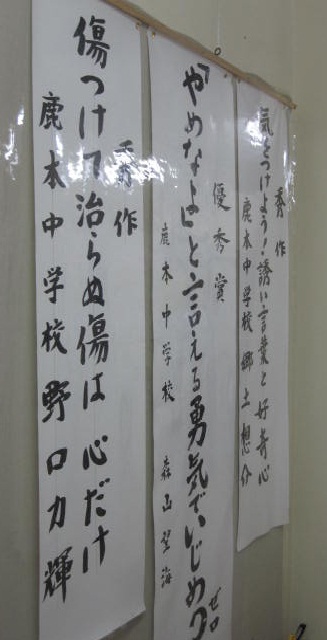 秀作
気をつけよう!誘い言葉と好奇心
鹿本中学校 郷土想介
優秀賞
『やめなよ』と言える勇気でいじめゼロ
鹿本中学校 森山望海
秀作
傷つけて治らぬ傷は心だけ
鹿本中学校 野口力輝